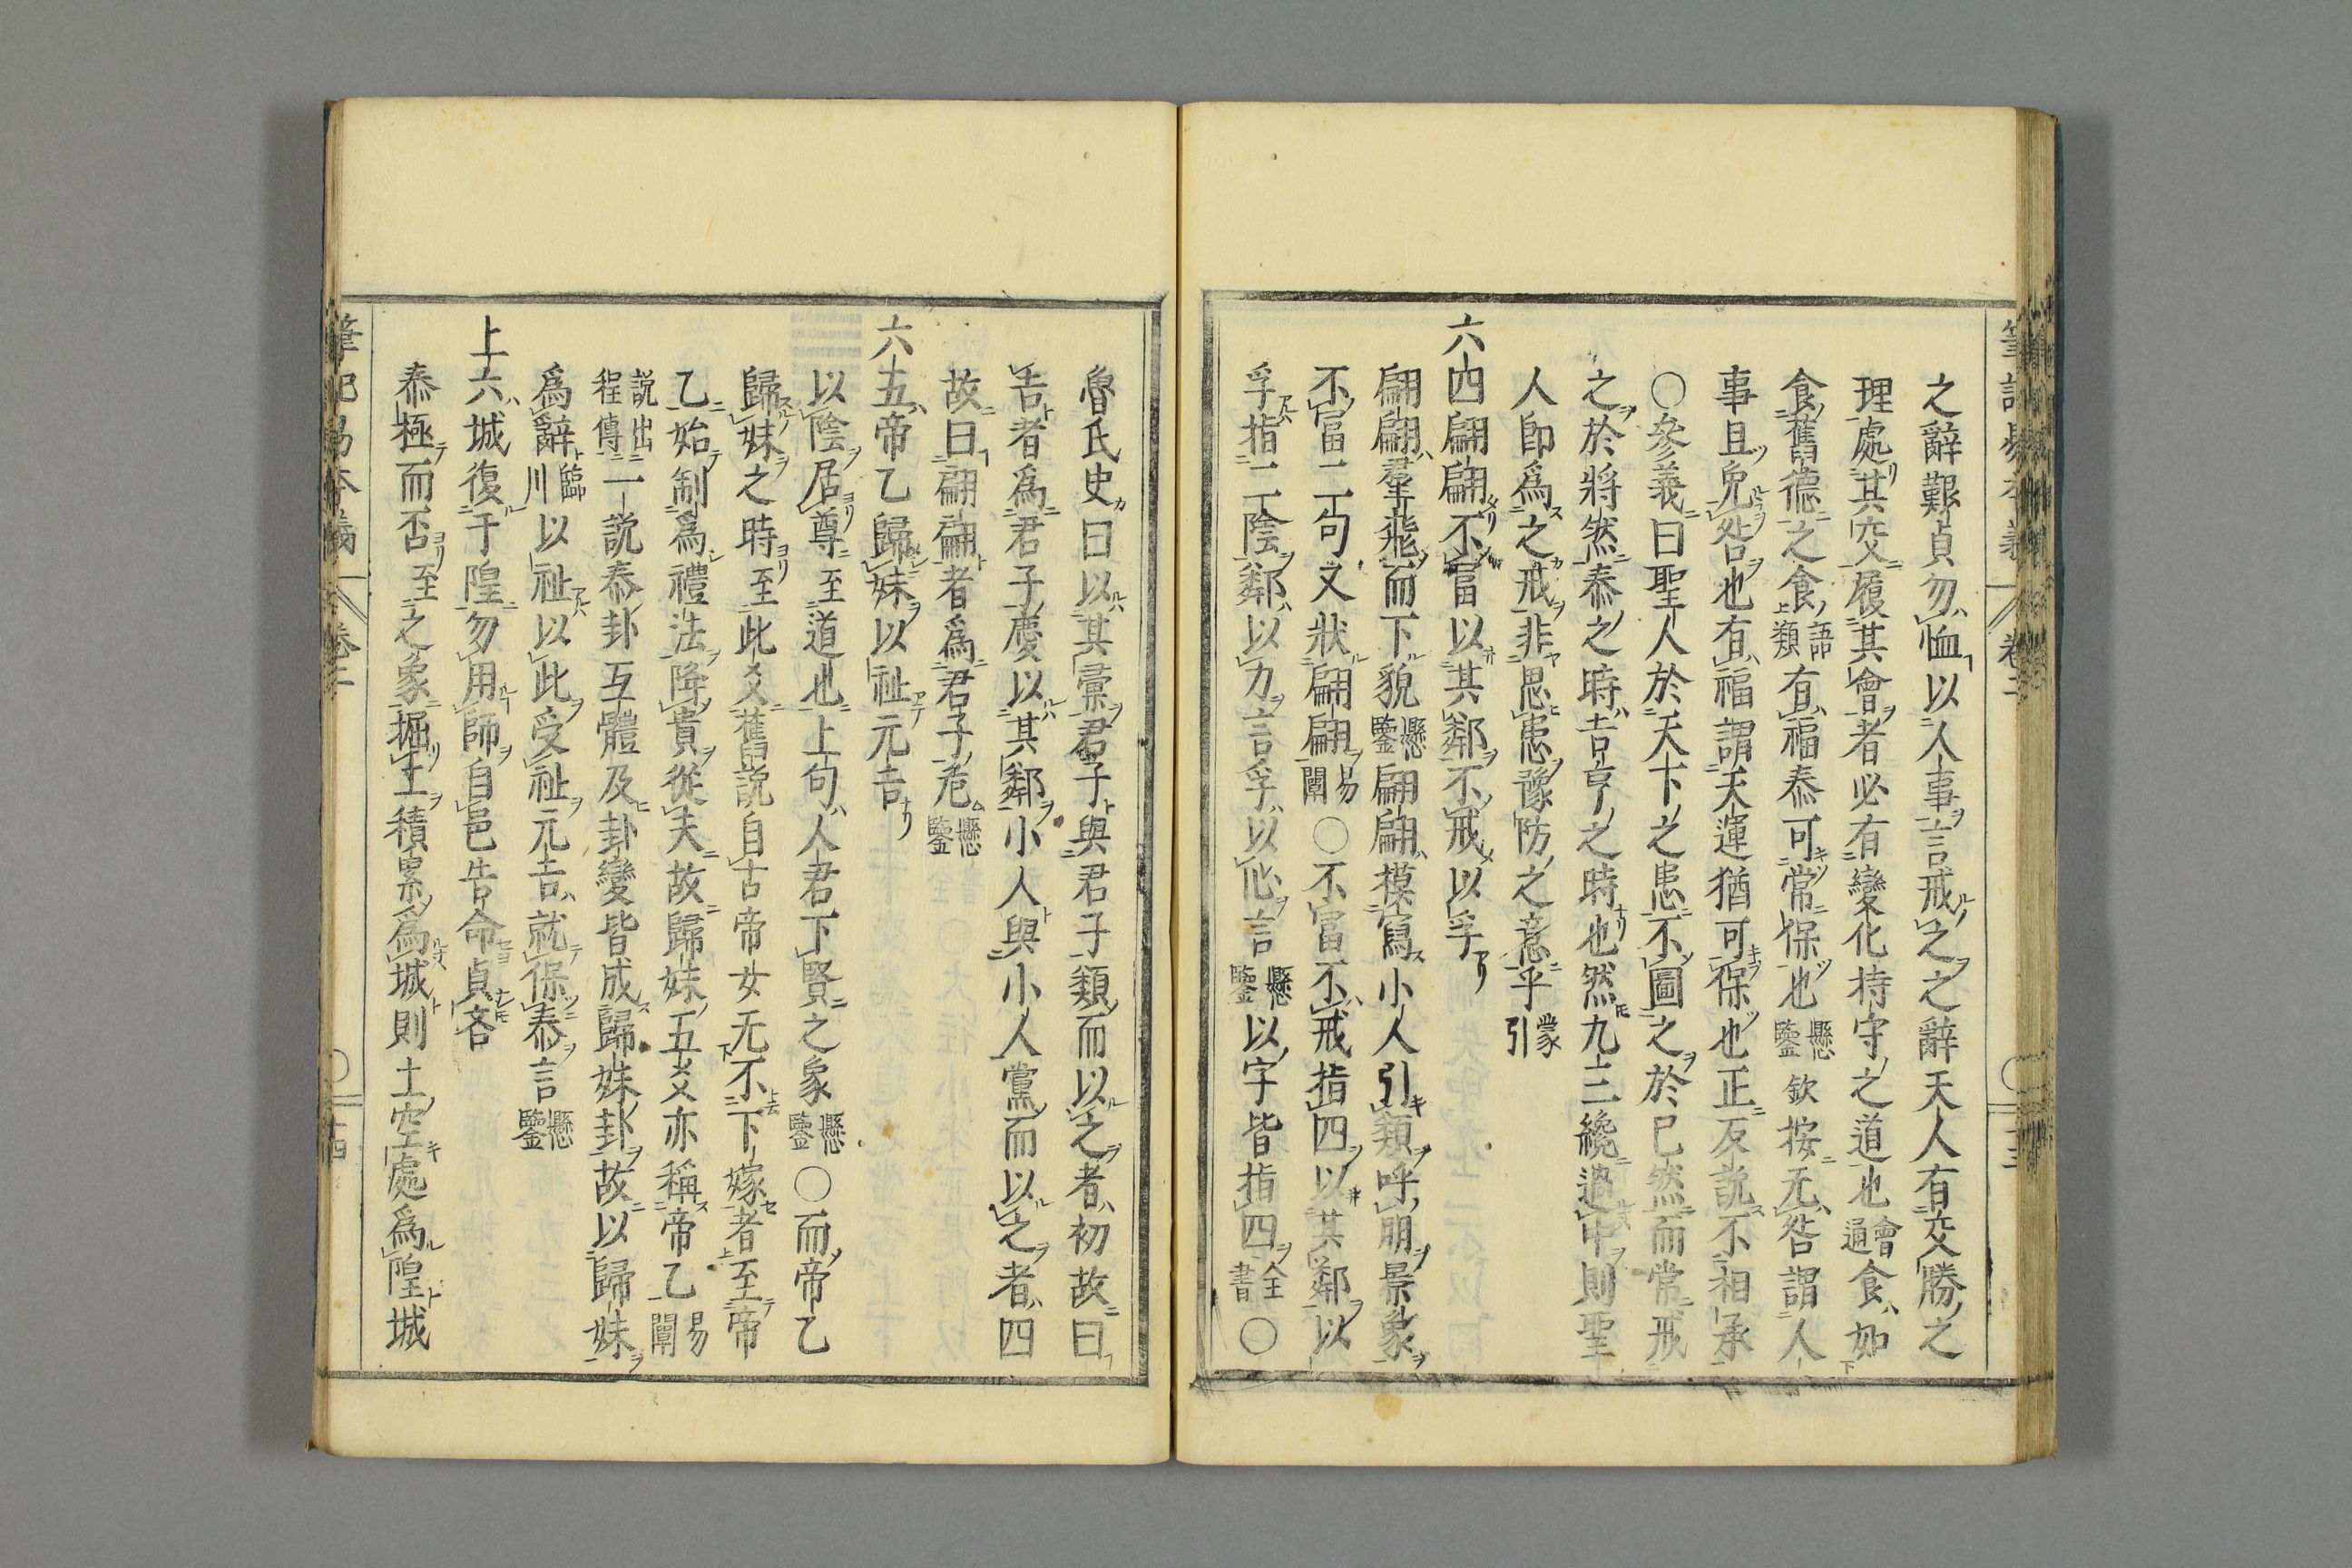 之辭艱貞勿恤以人事言戒之之辭天人有交勝之
理處其交履其會者必有變化持守之道也會通食如
食舊德之食語類上有福泰可常保也懸鑒欽按无咎謂人
事且免咎也有福謂天運猶可保也正反說不相承
〇參義曰聖人於天下之患不圖之於已然而常戒
之於將然泰之時吉亨之時也然九三纔過中則聖
人卽爲之戒非思患豫防之意乎蒙引
六四翩翩不富以其鄰不戒以孚
翩翩羣飛而下貌懸鑒翩翩摸寫小人引類呼朋景象
不富二句又狀翩翩易闡〇不富不戒指四以其鄰以
孚指二陰鄰以力言孚以心言懸鑒以字皆指四全書〇
魯氏史曰以其彙君子與君子類而以之者初故曰
吉者爲君子慶以其鄰小人與小人黨而以之者四
故曰翩翩者爲君子危懸鑒
六五帝乙歸妹以祉元吉
以陰居尊至道也上句人君下賢之象懸鑒〇而帝乙
歸妹之時至此爻舊說自古帝女无不下嫁者至帝
乙始制爲禮法降貴從夫故歸妹五爻亦稱帝乙易闡
說出程傳一說泰卦互體及卦變皆成歸妹卦故以歸妹
爲辭臨川以祉以此受祉元吉就保泰言懸鑒
上六城復于隍勿用師自邑告命貞吝
泰極而否至之象掘土積累爲城則土空處爲隍城